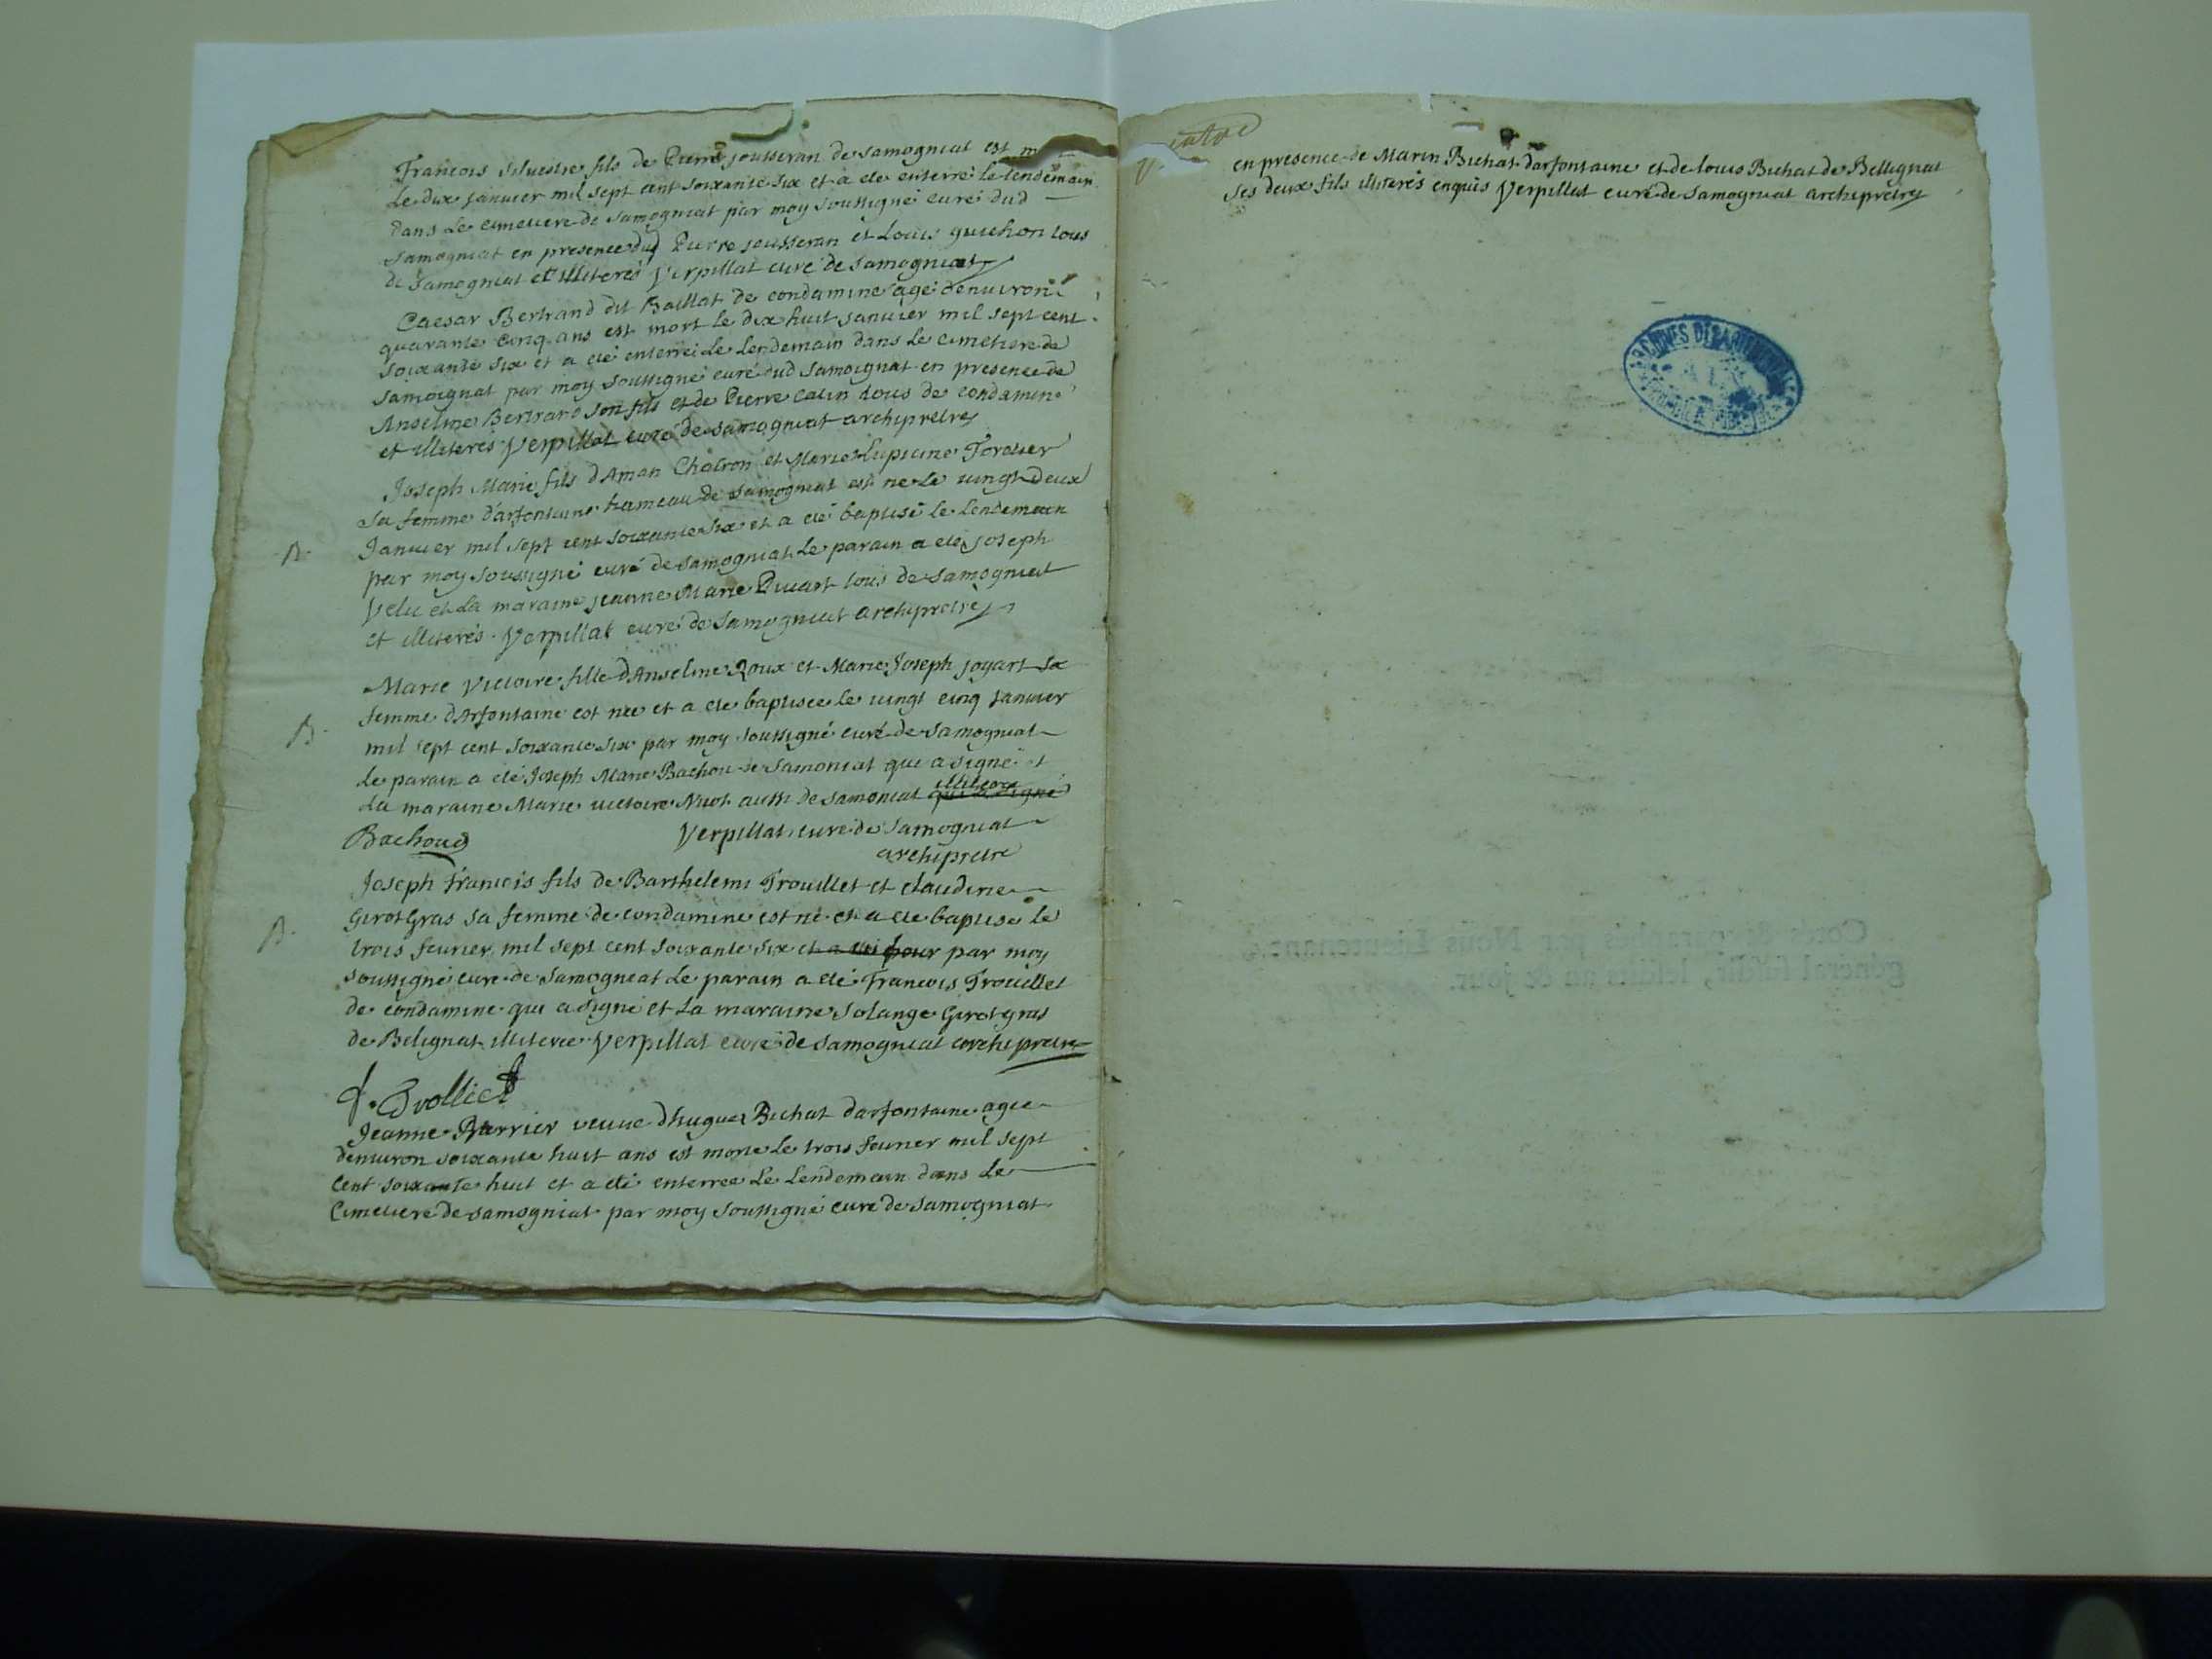 Francois Silvestre fils de Pierre jousseran de samogniat est
le dix janvier mil sept cent soixante six et a ete enterré le lendemain
dans le cimetiere de samogniat par moy soussigné curé dud
samogniat en presence dud Pierre jousseran et Louis guichon tous
de samogniat et illiterés Verpillat curé de samogniat
Caesar Bertrand dit Baillat de condamine agé d'environ
quarante cinq ans est mort le dix huit janvier mil sept cent
soixante six et a eté enterré le lendemain dans le cimetiere de
samoignat par moy soussigné curé dud samoignat en presence de
Anselme Bertrand son fils et de Pierre Catin tous de condamine
et illiterés Verpillat curé de samogniat archipretre
Joseph Marie fils d'Aman Chatron et Marie Lupicine Toratier
sa femme d'arfontaine hameau de samogniat est ne le vingt deux
Janvier mil sept cent soixante six et a eté baptisé le lendemain
B.
par moy soussigné curé de samogniat le parain a eté joseph
Velu et la maraine jeanne Marie Picart tous de samogniat
et illiterés. Verpillat curé de samogniat archipretre
Marie Victoire fille d'Anselme Roux et Marie Joseph joyart sa
femme d'Arfontaine est née et a ete baptisée le vingt cinq janvier
B.
mil sept cent soixante six par moy soussigné curé de samogniat
le parain a eté Joseph Marie Bachou de samoniat qui a signé et
la maraine Marie victoire Niot aussi de samoniat qui a signé
Bachoud Verpillat curé de samogniat
archipretre
Joseph Francois fils de Barthelemi Trouillet et claudine
Girot Gras sa femme de condamine est né et a ete baptisé le
B.
trois fevrier mil sept cent soixante six et a eté pour par moy
soussigné curé de samogneat le parain a eté Francois Trouillet
de condamine qui a signé et la maraine Solange Girotgras
de Belignat illiterée Verpillat curé de samogniat archipretre
f. Trolliet
Jeanne Barrier veuve d'hugues Bichat d'arfontaine agée
d'environ soixante huit ans est morte le trois fevrier mil sept
cent soixante huit et a eté enterrée le lendemain dans le
cimetiere de samogniat par moy soussigné curé de samogniat
en presence de Marin Bichat d'arfontaine et de louis Bichat de Bellignat
ses deux fils illiterés enquis Verpillat curé de samogniat archipretre